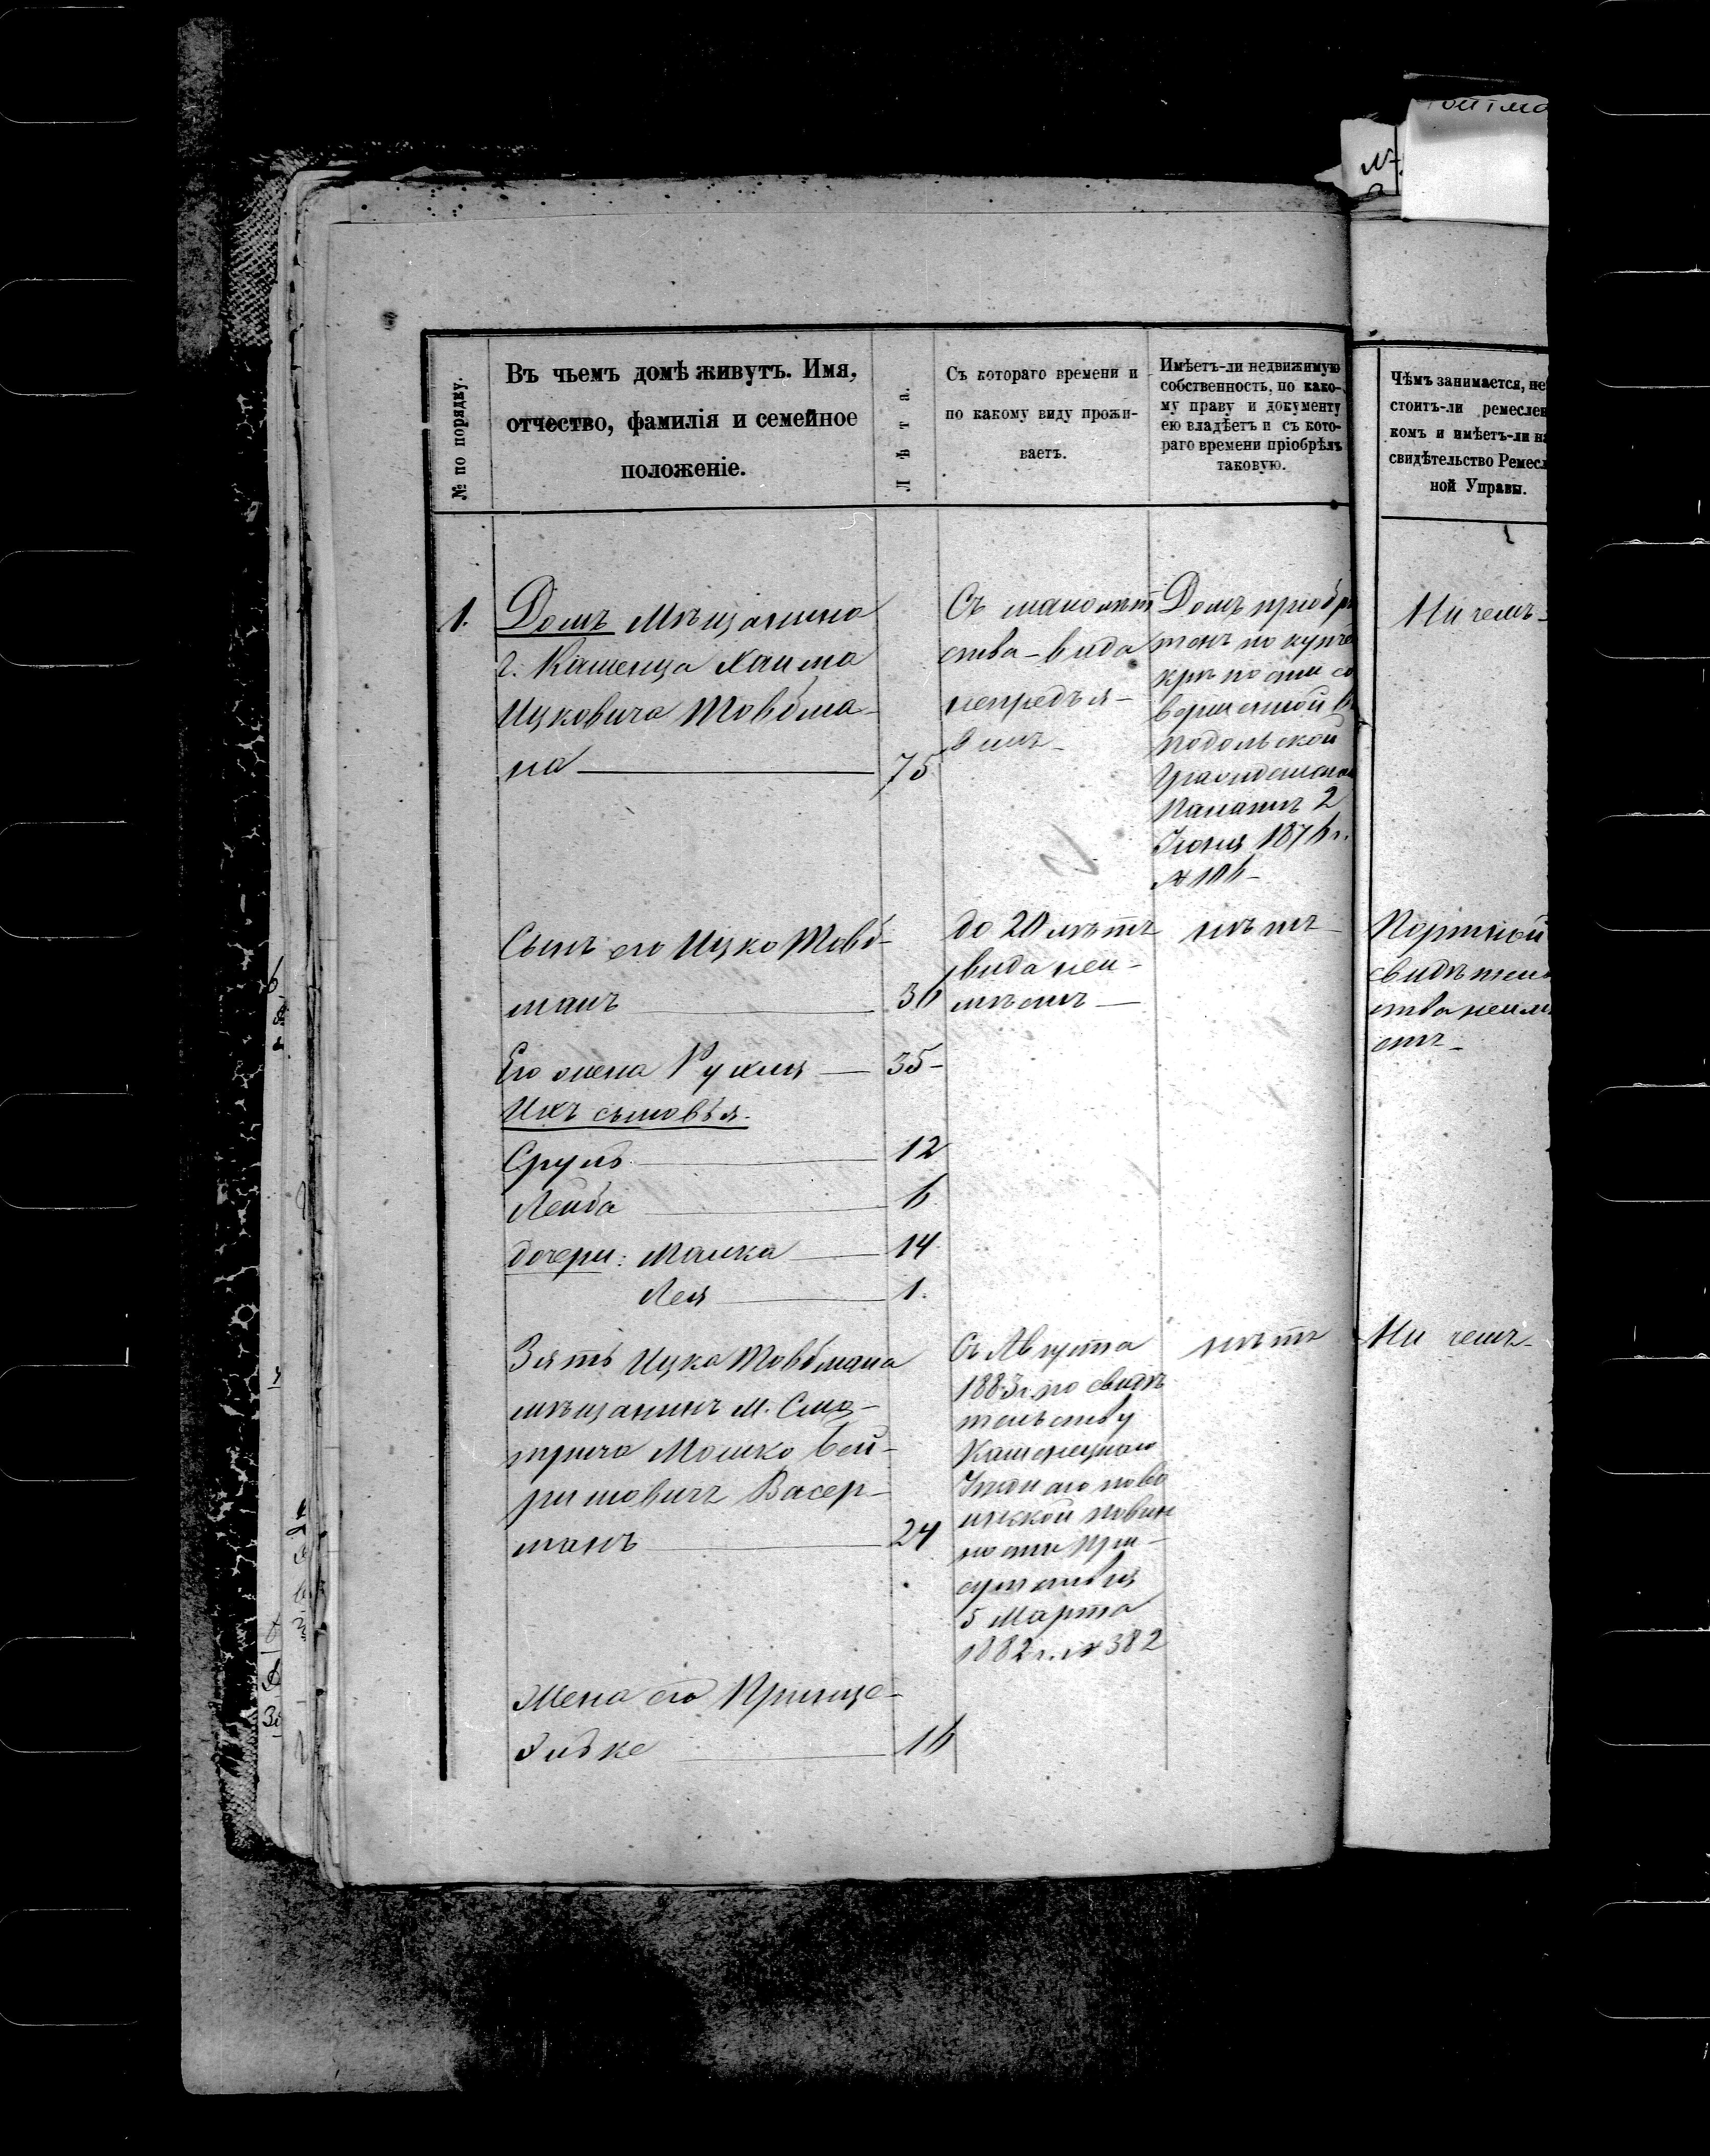 № по порядку.
Въ чьемъ домѣ живутъ. Имя,
отчество, фамилія и семейное
положеніе.
Лѣта.
Съ котораго времени и
по какому виду прожи-
ваетъ.
Имѣетъ-ли недвижимую
собственность, по како-
му праву и документу
ею владѣетъ и съ кото-
раго времени пріобрѣлъ
таковую.
Чѣмъ занимается, не
стоитъ-ли ремеслен
комъ и имѣетъ-ли на
свидѣтельство Ремесл
ной Управы.
1.
Домъ Мѣщанина
г. Каменца Хаима
Ицковича Товбма-
на 75
Съ малолѣт
ства - вида
непредъя-
вилъ
Домъ пріобрѣ
тенъ по купчей
крѣпости со
вершенной въ
Подольской
Гражданской
Палатѣ 2
Іюня 1876 г.
№ 106
Ничемъ
Сынъ его Ицко Товб-
манъ 36
до 20 лѣтъ
вида неи-
мѣетъ
нѣтъ
Портной
свидѣтель
ства неимѣ
етъ
Его жена Рухля 35
Ихъ сыновья.
Сруль 12
Лейба 6
дочери: Малка 14
Лея 1.
Зять Ицка Товбмана
мѣщанинъ м. Смо-
трича Мошко Бей-
ришовичъ Васер-
манъ 24
Съ Августа
1883 г. по свидѣ
тельству
Каменецкаго
Уѣзднаго по во
инской повин
ности При-
сутствія
5 Марта
1882 г. № 382
нѣтъ
Ни чемъ
Жена его Принце-
16